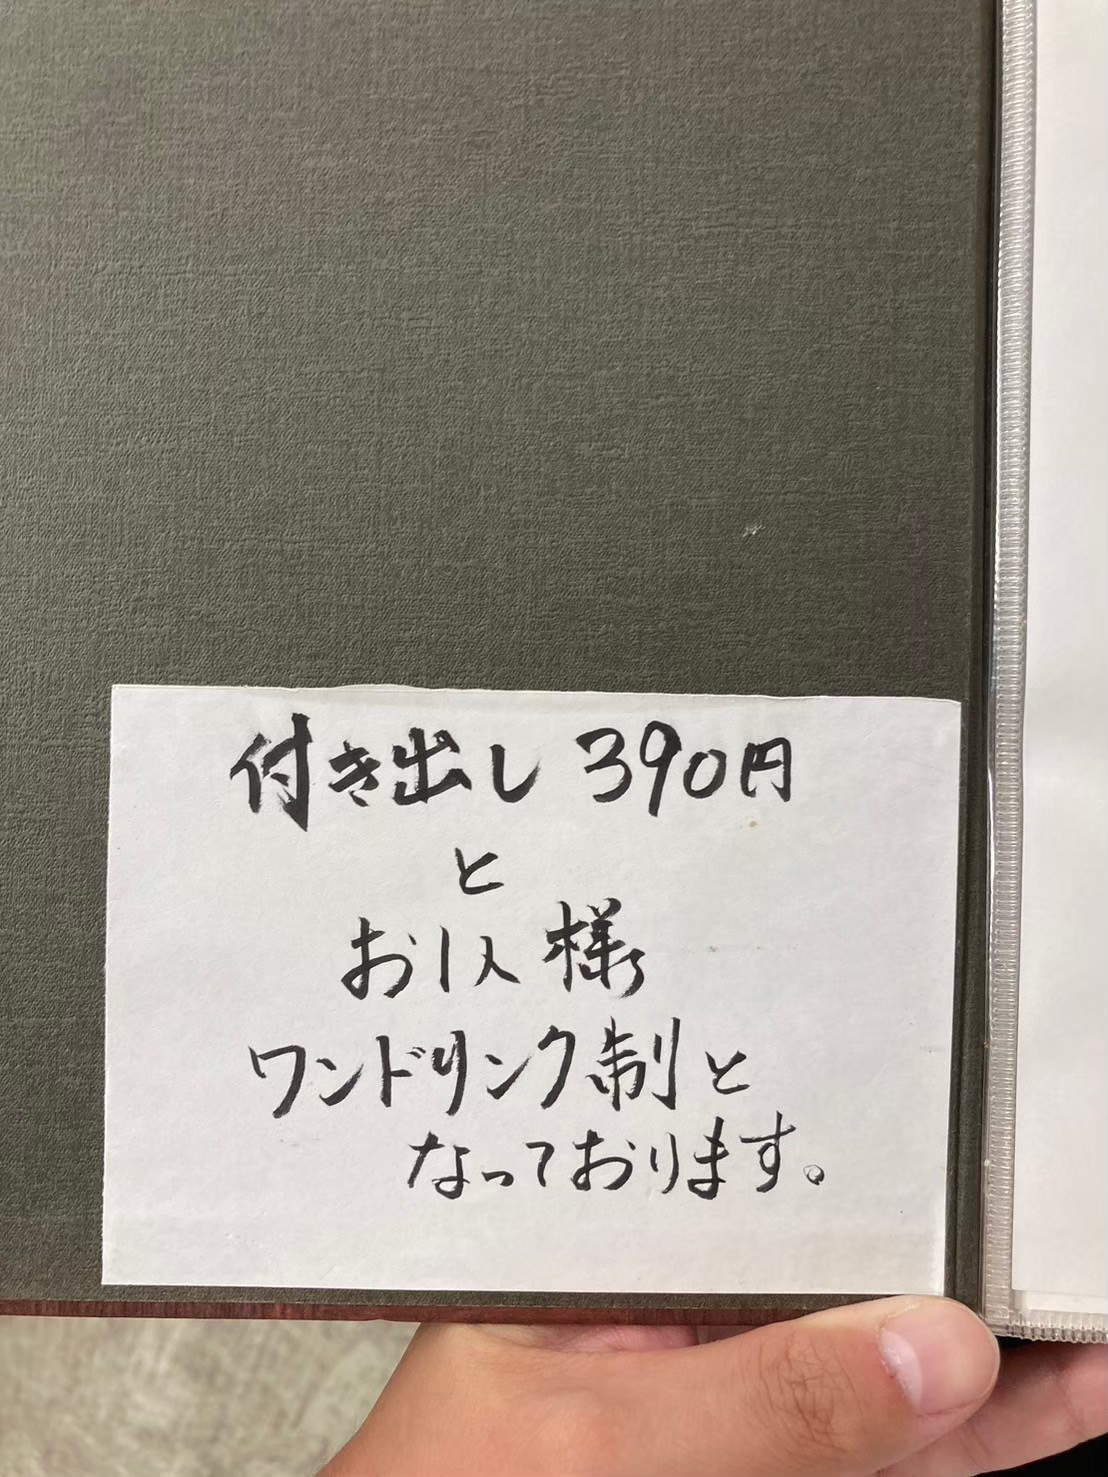 付き出し 390円
と
お1人様
ワンドリンク制と
なっております。